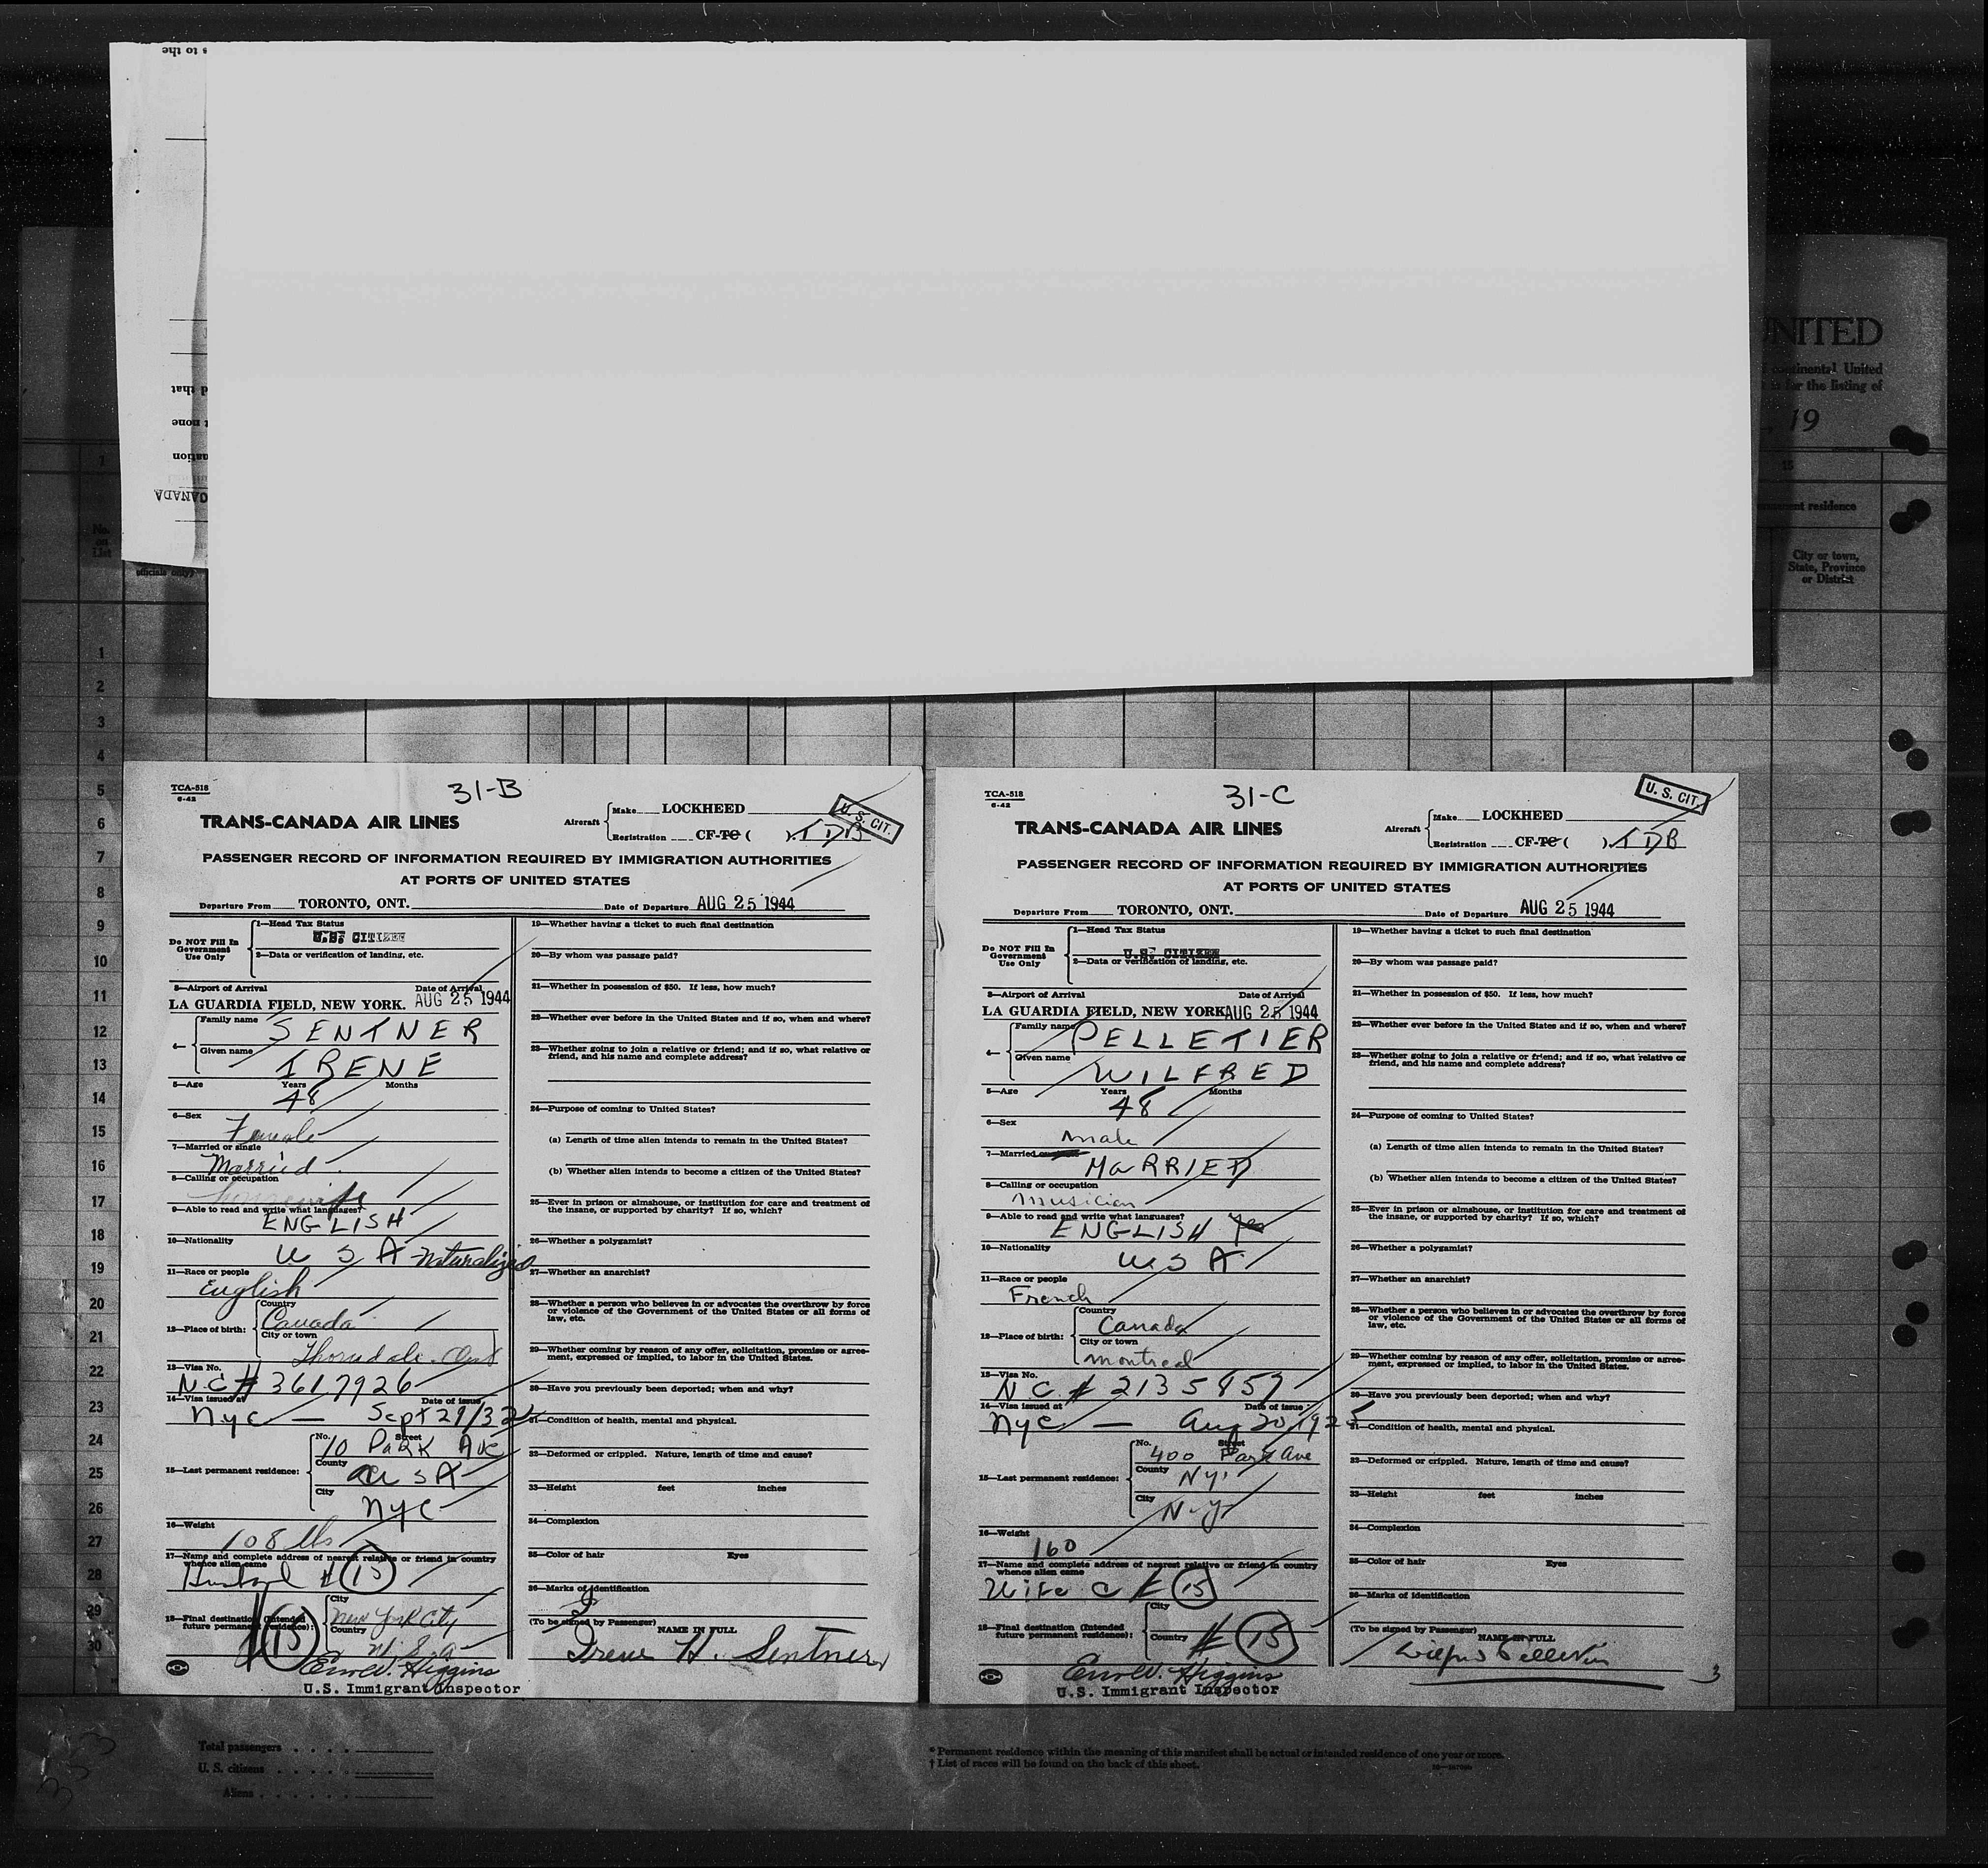 UNITED
continental United
is for the listing of
, 19
15
permanent residence
City or town,
State, Province
or District
No.
on
List
1
2
3
4
5
6
7
8
9
10
11
12
13
14
15
16
17
18
19
20
21
22
23
24
25
26
27
28
29
30
TCA-518
6-42
31-B
U. S. CIT.
TRANS-CANADA AIR LINES
Aircraft
Make LOCKHEED
Registration CF-TC ( ) TDB
PASSENGER RECORD OF INFORMATION REQUIRED BY IMMIGRATION AUTHORITIES
AT PORTS OF UNITED STATES
Departure From TORONTO, ONT. Date of Departure AUG 25 1944
Do NOT Fill In
Government
Use Only
1—Head Tax Status
U.S. CITIZEN
2—Data or verification of landing, etc.
3—Airport of Arrival Date of Arrival
LA GUARDIA FIELD, NEW YORK. AUG 25 1944
4— Family name SENTNER
Given name IRENE
5—Age Years Months
48
6—Sex
Female
7—Married or single
Married
8—Calling or occupation
housewife
9—Able to read and write what languages?
ENGLISH
10—Nationality
U S A - Naturalized
11—Race or people
English
12—Place of birth:
Country
Canada
City or town
Thorndale. Ont
13—Visa No.
N.C # 3617926
14—Visa issued at Date of issue
NYC — Sept 29/32
15—Last permanent residence:
No. Street
10 PARK AVE
County
U S A
City
NYC
16—Weight
108 lbs
17—Name and complete address of nearest relative or friend in country
whence alien came
Husband # 15
18—Final destination (Intended
future permanent residence):
# 15
City
New York City
Country
U.S.A
Errol V. Higgins
U.S. Immigrant Inspector
19—Whether having a ticket to such final destination
20—By whom was passage paid?
21—Whether in possession of $50. If less, how much?
22—Whether ever before in the United States and if so, when and where?
23—Whether going to join a relative or friend; and if so, what relative or
friend, and his name and complete address?
24—Purpose of coming to United States?
(a) Length of time alien intends to remain in the United States?
(b) Whether alien intends to become a citizen of the United States?
25—Ever in prison or almshouse, or institution for care and treatment of
the insane, or supported by charity? If so, which?
26—Whether a polygamist?
27—Whether an anarchist?
28—Whether a person who believes in or advocates the overthrow by force
or violence of the Government of the United States or all forms of
law, etc.
29—Whether coming by reason of any offer, solicitation, promise or agree-
ment, expressed or implied, to labor in the United States.
30—Have you previously been deported; when and why?
31—Condition of health, mental and physical.
32—Deformed or crippled. Nature, length of time and cause?
33—Height feet inches
34—Complexion
35—Color of hair Eyes
36—Marks of identification
(To be signed by Passenger)
NAME IN FULL
Irene H. Sentner
TCA-518
6-42
31-C
U. S. CIT.
TRANS-CANADA AIR LINES
Aircraft
Make LOCKHEED
Registration CF-TC ( ) TDB
PASSENGER RECORD OF INFORMATION REQUIRED BY IMMIGRATION AUTHORITIES
AT PORTS OF UNITED STATES
Departure From TORONTO, ONT. Date of Departure AUG 25 1944
Do NOT Fill In
Government
Use Only
1—Head Tax Status
U.S. CITIZEN
2—Data or verification of landing, etc.
3—Airport of Arrival Date of Arrival
LA GUARDIA FIELD, NEW YORK AUG 25 1944
4— Family name PELLETIER
Given name WILFRED
5—Age Years Months
48
6—Sex
male
7—Married
MARRIED
8—Calling or occupation
musician
9—Able to read and write what languages?
ENGLISH yes
10—Nationality
U S A
11—Race or people
French
12—Place of birth:
Country
Canada
City or town
montreal
13—Visa No.
N.C. # 2135857
14—Visa issued at Date of issue
NYC — Aug 20, 1925
15—Last permanent residence:
No. Street
400 Park Ave
County
NY.
City
N-Y
16—Weight
160
17—Name and complete address of nearest relative or friend in country
whence alien came
Wife @ # 15
18—Final destination (Intended
future permanent residence):
City
Country # 15
Errol V. Higgins
U.S. Immigrant Inspector
19—Whether having a ticket to such final destination
20—By whom was passage paid?
21—Whether in possession of $50. If less, how much?
22—Whether ever before in the United States and if so, when and where?
23—Whether going to join a relative or friend; and if so, what relative or
friend, and his name and complete address?
24—Purpose of coming to United States?
(a) Length of time alien intends to remain in the United States?
(b) Whether alien intends to become a citizen of the United States?
25—Ever in prison or almshouse, or institution for care and treatment of
the insane, or supported by charity? If so, which?
26—Whether a polygamist?
27—Whether an anarchist?
28—Whether a person who believes in or advocates the overthrow by force
or violence of the Government of the United States or all forms of
law, etc.
29—Whether coming by reason of any offer, solicitation, promise or agree-
ment, expressed or implied, to labor in the United States.
30—Have you previously been deported; when and why?
31—Condition of health, mental and physical.
32—Deformed or crippled. Nature, length of time and cause?
33—Height feet inches
34—Complexion
35—Color of hair Eyes
36—Marks of identification
(To be signed by Passenger)
NAME IN FULL
Wilfred Pelletier
3
Total passengers
U. S. citizens
Aliens
* Permanent residence within the meaning of this manifest shall be actual or intended residence of one year or more.
† List of races will be found on the back of this sheet.